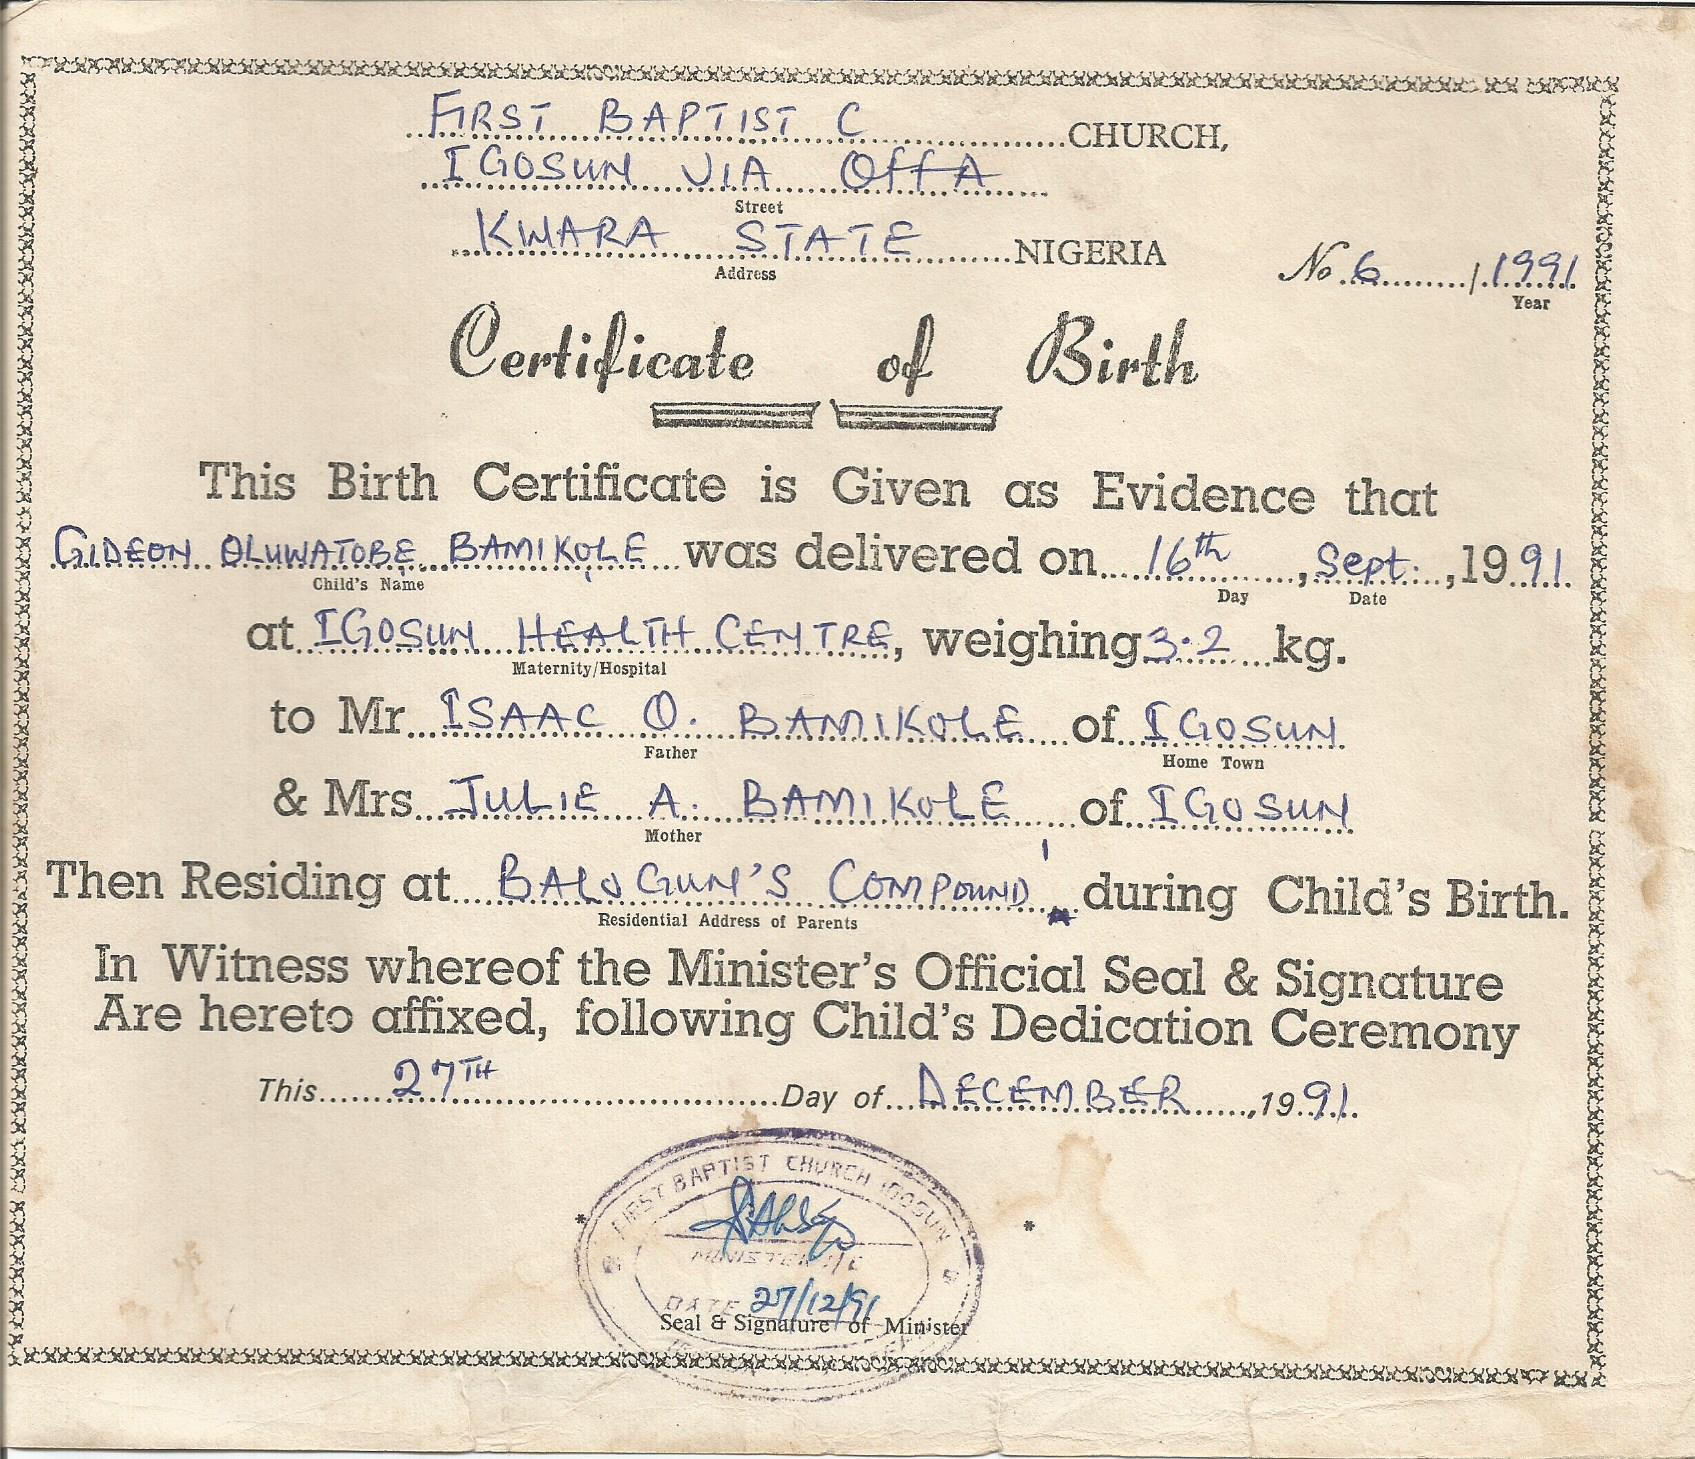 FIRST BAPTIST C CHURCH,
IGOSUN VIA OffA
Street
KWARA STATE NIGERIA
Address
No 6 / 1991
Year
Certificate of Birth
This Birth Certificate is Given as Evidence that
GIDEON OLUWATOBE BAMIKOLE was delivered on 16th, Sept., 1991.
Child's Name Day Date
at IGOSUN HEALTH CENTRE, weighing 3.2 kg.
Maternity/Hospital
to Mr ISAAC O. BAMIKOLE of IGOSUN
Father Home Town
& Mrs JULIE A. BAMIKOLE of IGOSUN
Mother
Then Residing at BALOGUN'S COMPOUND during Child's Birth.
Residential Address of Parents
In Witness whereof the Minister's Official Seal & Signature
Are hereto affixed, following Child's Dedication Ceremony
This 27TH Day of DECEMBER, 1991.
FIRST BAPTIST CHURCH IGOSUN
MINISTER I/C
DATE 27/12/91
Seal & Signature of Minister